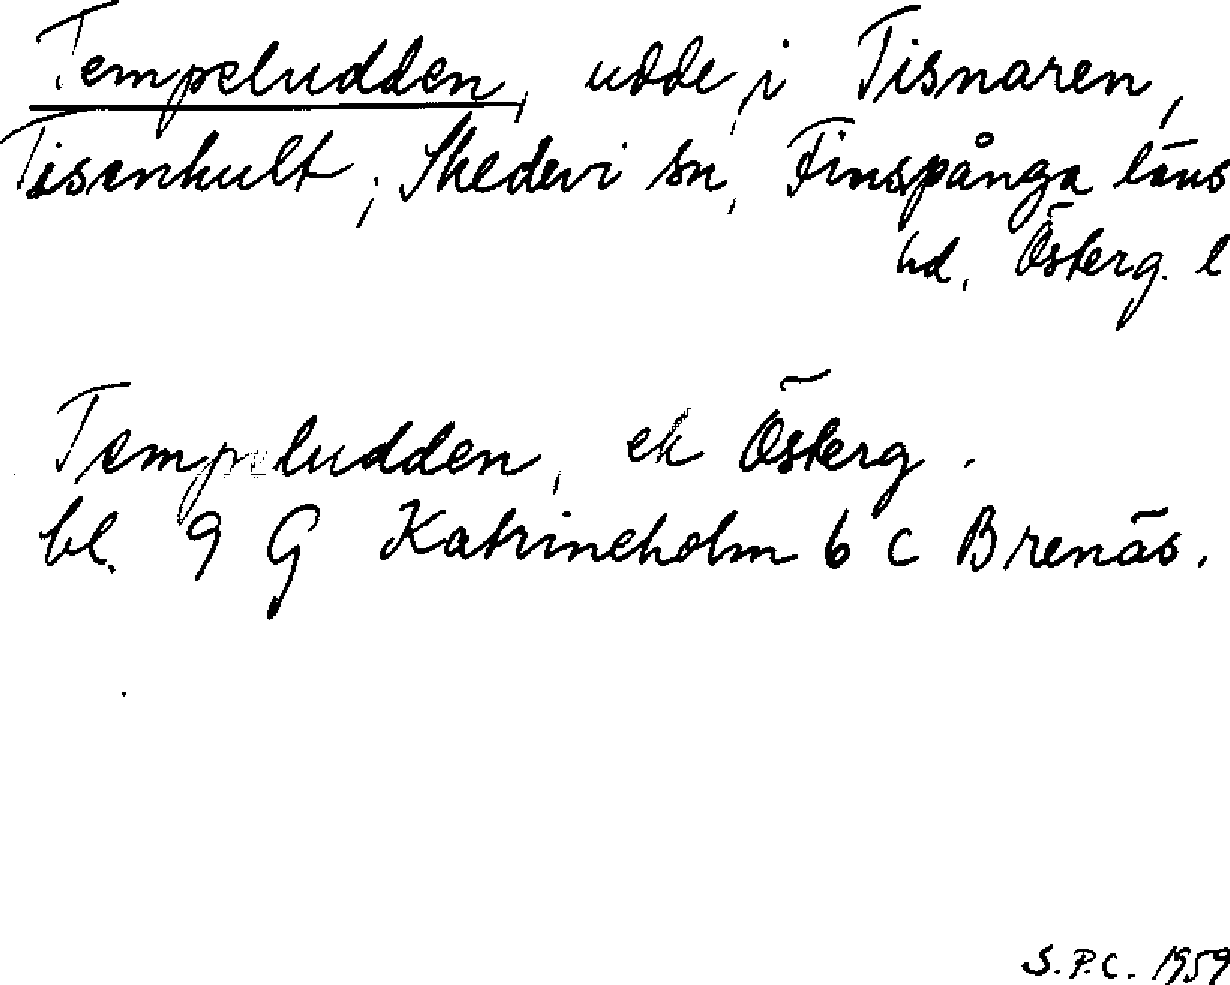 Tempeludden, udde i Tisnaren,
Tisenhult, Skedevi sn, Finspånga läns
hd, Österg. l
Tempeludden, ek Österg.
bl. 9 G Katrineholm 6 c Brenäs.
S.P.C. 1959